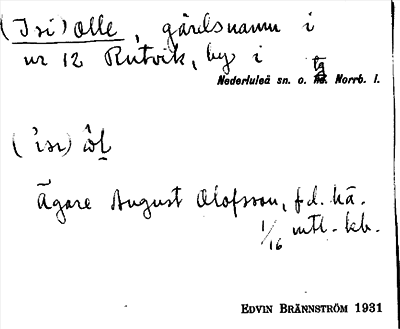 (Isi) Olle, gårdsnamn i
nr 12 Rutvik, by i
Nederluleå sn. o. tg Norrb. l.
('isi) ôl
Ägare August Olofsson, f.d. hä.
1/16 mtl. kb.
EDVIN BRÄNNSTRÖM 1931